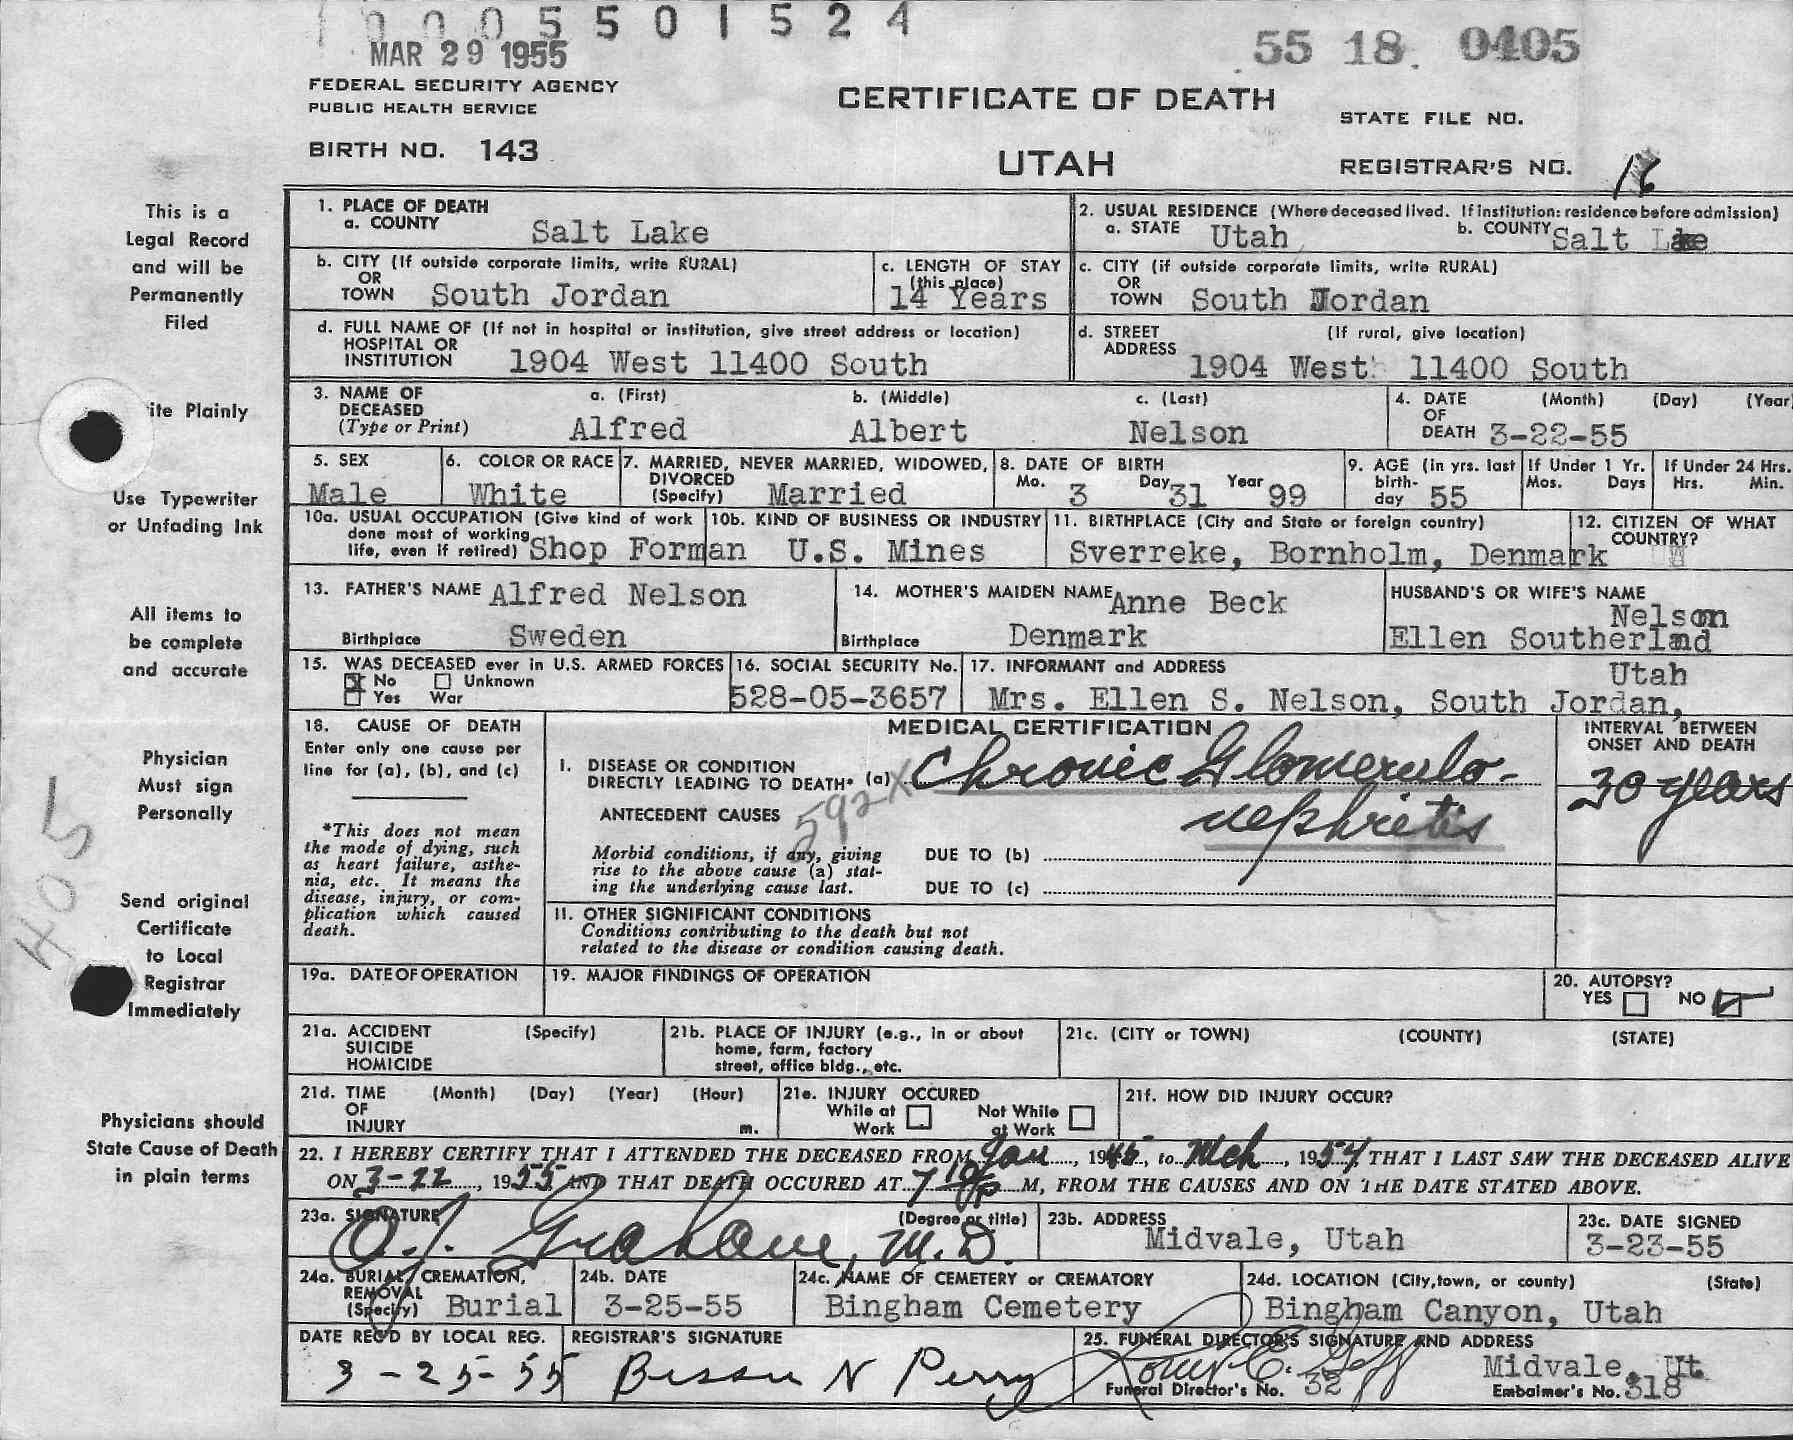 0005501524
MAR 29 1955
55 18 0405
FEDERAL SECURITY AGENCY
PUBLIC HEALTH SERVICE
CERTIFICATE OF DEATH
STATE FILE NO.
BIRTH NO. 143
UTAH
REGISTRAR'S NO. 16
This is a
Legal Record
and will be
Permanently
Filed
ite Plainly
Use Typewriter
or Unfading Ink
All items to
be complete
and accurate
Physician
Must sign
Personally
405
Send original
Certificate
to Local
Registrar
Immediately
Physicians should
State Cause of Death
in plain terms
1. PLACE OF DEATH
a. COUNTY Salt Lake
2. USUAL RESIDENCE (Where deceased lived. If institution: residence before admission)
a. STATE Utah b. COUNTY Salt Lake
b. CITY (If outside corporate limits, write RURAL)
OR
TOWN South Jordan
c. LENGTH OF STAY
(this place)
14 Years
c. CITY (if outside corporate limits, write RURAL)
OR
TOWN South Jordan
d. FULL NAME OF (If not in hospital or institution, give street address or location)
HOSPITAL OR
INSTITUTION 1904 West 11400 South
d. STREET (If rural, give location)
ADDRESS 1904 West 11400 South
3. NAME OF
DECEASED
(Type or Print)
a. (First) b. (Middle) c. (Last)
Alfred Albert Nelson
4. DATE (Month) (Day) (Year)
OF
DEATH 3-22-55
5. SEX
Male
6. COLOR OR RACE
White
7. MARRIED, NEVER MARRIED, WIDOWED,
DIVORCED
(Specify) Married
8. DATE OF BIRTH
Mo. 3 Day 31 Year 99
9. AGE (in yrs. last
birth-
day 55
If Under 1 Yr.
Mos. Days
If Under 24 Hrs.
Hrs. Min.
10a. USUAL OCCUPATION (Give kind of work
done most of working
life, even if retired) Shop Forman
10b. KIND OF BUSINESS OR INDUSTRY
U.S. Mines
11. BIRTHPLACE (City and State or foreign country)
Sverreke, Bornholm, Denmark
12. CITIZEN OF WHAT
COUNTRY?
13. FATHER'S NAME Alfred Nelson
Birthplace Sweden
14. MOTHER'S MAIDEN NAME Anne Beck
Birthplace Denmark
HUSBAND'S OR WIFE'S NAME
Nelson
Ellen Southerland
15. WAS DECEASED ever in U.S. ARMED FORCES
X No Unknown
Yes War
16. SOCIAL SECURITY No.
528-05-3657
17. INFORMANT and ADDRESS
Utah
Mrs. Ellen S. Nelson, South Jordan,
18. CAUSE OF DEATH
Enter only one cause per
line for (a), (b), and (c)
*This does not mean
the mode of dying, such
as heart failure, asthe-
nia, etc. It means the
disease, injury, or com-
plication which caused
death.
MEDICAL CERTIFICATION
I. DISEASE OR CONDITION
DIRECTLY LEADING TO DEATH* (a) Chronic Glomerulo-
nephritis
592X
ANTECEDENT CAUSES
Morbid conditions, if any, giving
rise to the above cause (a) stat-
ing the underlying cause last.
DUE TO (b)
DUE TO (c)
INTERVAL BETWEEN
ONSET AND DEATH
30 years
II. OTHER SIGNIFICANT CONDITIONS
Conditions contributing to the death but not
related to the disease or condition causing death.
19a. DATE OF OPERATION
19. MAJOR FINDINGS OF OPERATION
20. AUTOPSY?
YES NO
21a. ACCIDENT (Specify)
SUICIDE
HOMICIDE
21b. PLACE OF INJURY (e.g., in or about
home, farm, factory
street, office bldg., etc.
21c. (CITY or TOWN) (COUNTY) (STATE)
21d. TIME (Month) (Day) (Year) (Hour)
OF
INJURY m.
21e. INJURY OCCURED
While at Not While
Work at Work
21f. HOW DID INJURY OCCUR?
22. I HEREBY CERTIFY THAT I ATTENDED THE DECEASED FROM Jan, 1945, to Mch, 1954, THAT I LAST SAW THE DECEASED ALIVE
ON 3-22, 1955 AND THAT DEATH OCCURED AT 7 10/P M, FROM THE CAUSES AND ON THE DATE STATED ABOVE.
23a. SIGNATURE (Degree or title)
O.J. Grahame, M.D.
23b. ADDRESS
Midvale, Utah
23c. DATE SIGNED
3-23-55
24a. BURIAL, CREMATION,
REMOVAL
(Specify) Burial
24b. DATE
3-25-55
24c. NAME OF CEMETERY or CREMATORY
Bingham Cemetery
24d. LOCATION (City, town, or county) (State)
Bingham Canyon, Utah
DATE REC'D BY LOCAL REG.
3-25-55
REGISTRAR'S SIGNATURE
Bessie N Perry
25. FUNERAL DIRECTOR'S SIGNATURE AND ADDRESS
Midvale, Ut
Funeral Director's No. 32 Embalmer's No. 318